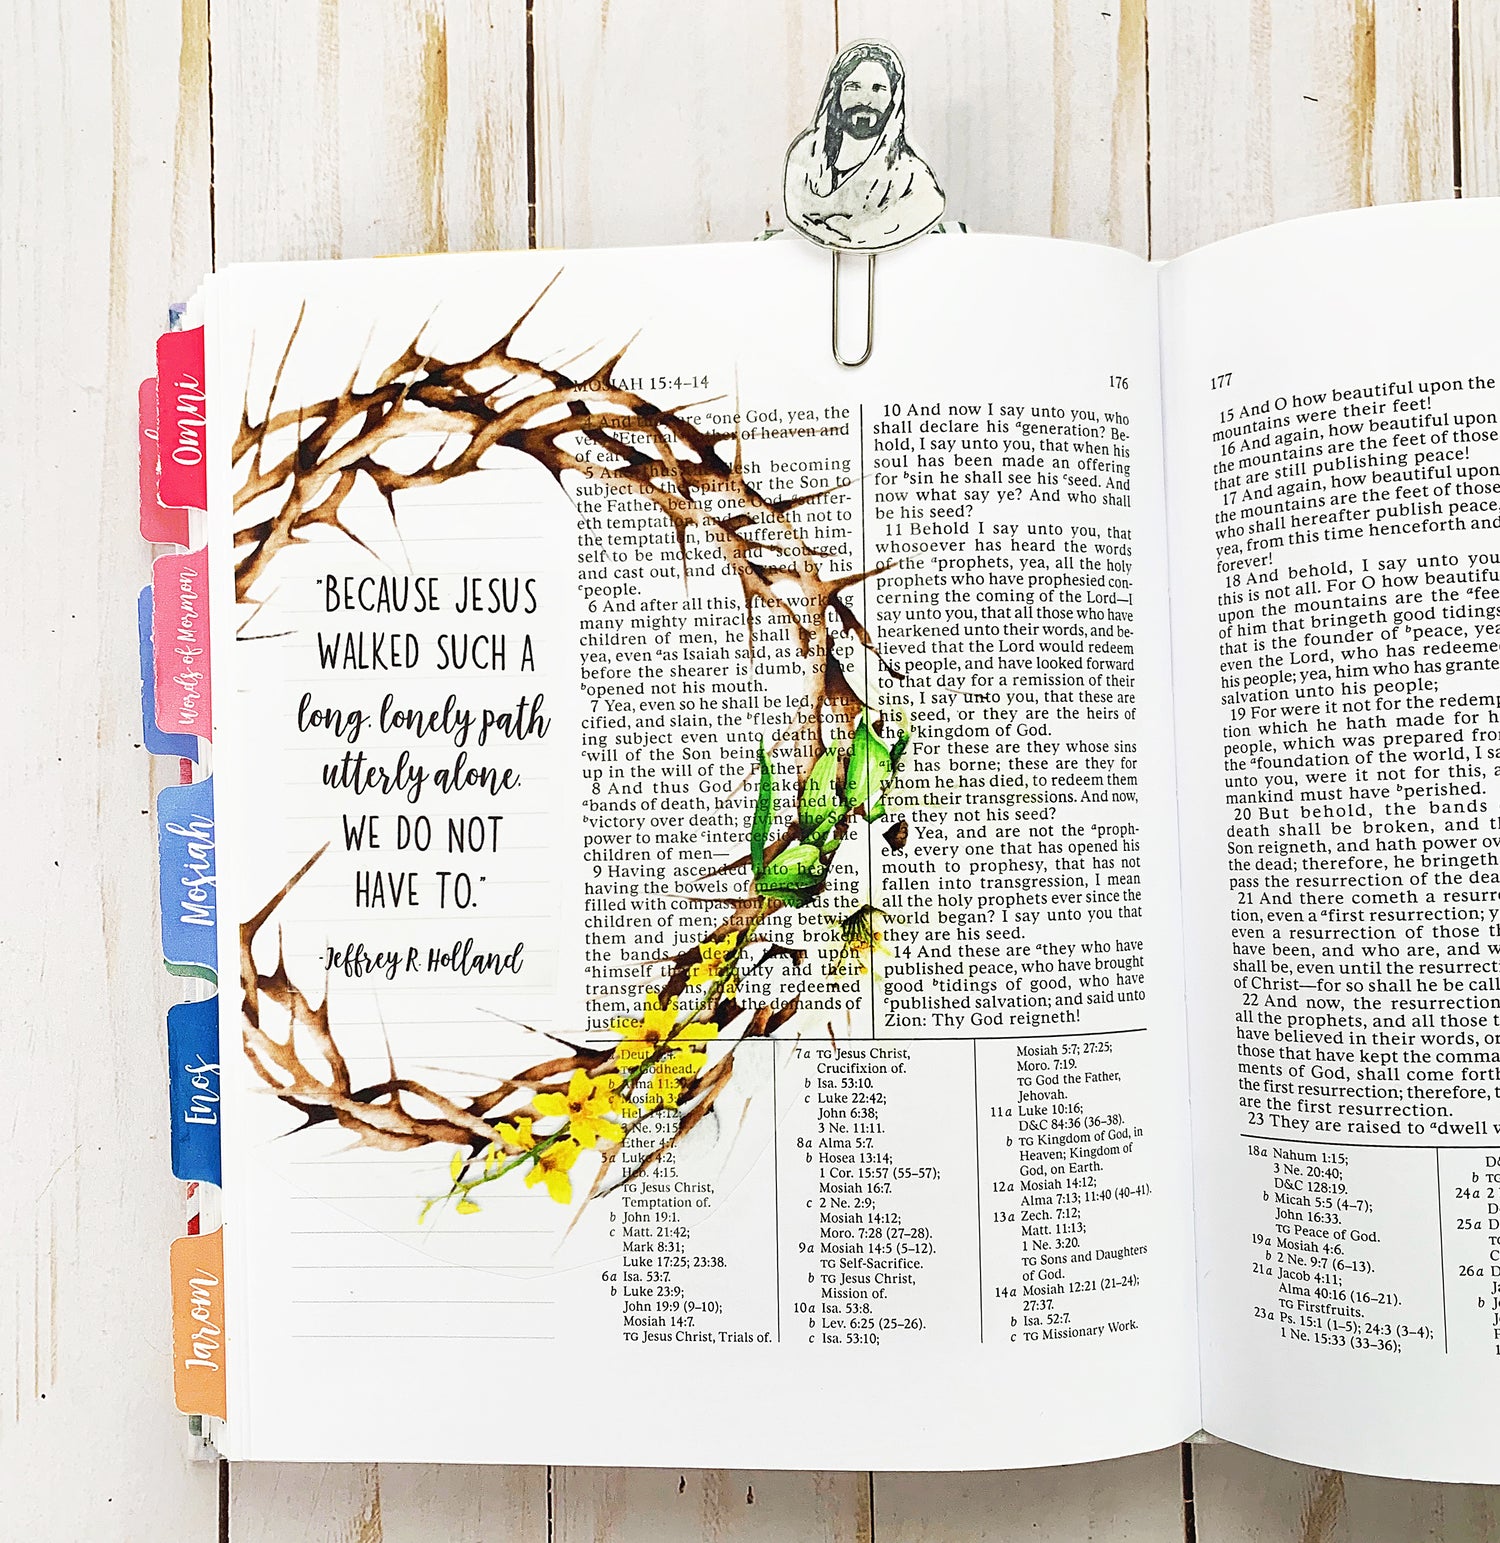 Omni
Words of Mormon
Mosiah
Enos
Jarom
"BECAUSE JESUS
WALKED SUCH A
long, lonely path
utterly alone,
WE DO NOT
HAVE TO."
-Jeffrey R. Holland
MOSIAH 15:4–14
176
4 And they are ᵃone God, yea, the
very ᵇEternal Father of heaven and
of earth.
5 And thus the flesh becoming
subject to the Spirit, or the Son to
the Father, being one God, ᵃsuffer-
eth temptation, and yieldeth not to
the temptation, but suffereth him-
self to be mocked, and ᵇscourged,
and cast out, and disowned by his
ᶜpeople.
6 And after all this, after working
many mighty miracles among the
children of men, he shall be led,
yea, even ᵃas Isaiah said, as a sheep
before the shearer is dumb, so he
ᵇopened not his mouth.
7 Yea, even so he shall be led, ᵃcru-
cified, and slain, the ᵇflesh becom-
ing subject even unto death, the
ᶜwill of the Son being swallowed
up in the will of the Father.
8 And thus God breaketh the
ᵃbands of death, having gained the
ᵇvictory over death; giving the Son
power to make ᶜintercession for the
children of men—
9 Having ascended into heaven,
having the bowels of mercy; being
filled with compassion towards the
children of men; standing betwixt
them and justice; having broken
the bands of death, taken upon
ᵃhimself their iniquity and their
transgressions, having redeemed
them, and satisfied the demands of
justice.
10 And now I say unto you, who
shall declare his ᵃgeneration? Be-
hold, I say unto you, that when his
soul has been made an offering
for ᵇsin he shall see his ᶜseed. And
now what say ye? And who shall
be his seed?
11 Behold I say unto you, that
whosoever has heard the words
of the ᵃprophets, yea, all the holy
prophets who have prophesied con-
cerning the coming of the Lord—I
say unto you, that all those who have
hearkened unto their words, and be-
lieved that the Lord would redeem
his people, and have looked forward
to that day for a remission of their
sins, I say unto you, that these are
his seed, or they are the heirs of
the ᵇkingdom of God.
12 For these are they whose sins
ᵃhe has borne; these are they for
whom he has died, to redeem them
from their transgressions. And now,
are they not his seed?
13 Yea, and are not the ᵃproph-
ets, every one that has opened his
mouth to prophesy, that has not
fallen into transgression, I mean
all the holy prophets ever since the
world began? I say unto you that
they are his seed.
14 And these are ᵃthey who have
published peace, who have brought
good ᵇtidings of good, who have
ᶜpublished salvation; and said unto
Zion: Thy God reigneth!
Deut.
TG Godhead.
b Alma 11:
c Mosiah 3:8;
Hel. 14:12;
3 Ne. 9:15;
Ether 4:7.
5a Luke 4:2;
Heb. 4:15.
TG Jesus Christ,
Temptation of.
b John 19:1.
c Matt. 21:42;
Mark 8:31;
Luke 17:25; 23:38.
6a Isa. 53:7.
b Luke 23:9;
John 19:9 (9–10);
Mosiah 14:7.
TG Jesus Christ, Trials of.
7a TG Jesus Christ,
Crucifixion of.
b Isa. 53:10.
c Luke 22:42;
John 6:38;
3 Ne. 11:11.
8a Alma 5:7.
b Hosea 13:14;
1 Cor. 15:57 (55–57);
Mosiah 16:7.
c 2 Ne. 2:9;
Mosiah 14:12;
Moro. 7:28 (27–28).
9a Mosiah 14:5 (5–12).
TG Self-Sacrifice.
b TG Jesus Christ,
Mission of.
10a Isa. 53:8.
b Lev. 6:25 (25–26).
c Isa. 53:10;
Mosiah 5:7; 27:25;
Moro. 7:19.
TG God the Father,
Jehovah.
11a Luke 10:16;
D&C 84:36 (36–38).
b TG Kingdom of God, in
Heaven; Kingdom of
God, on Earth.
12a Mosiah 14:12;
Alma 7:13; 11:40 (40–41).
13a Zech. 7:12;
Matt. 11:13;
1 Ne. 3:20.
TG Sons and Daughters
of God.
14a Mosiah 12:21 (21–24);
27:37.
b Isa. 52:7.
c TG Missionary Work.
177
15 And O how beautiful upon the
mountains were their feet!
16 And again, how beautiful upon
the mountains are the feet of those
that are still publishing peace!
17 And again, how beautiful upon
the mountains are the feet of those
who shall hereafter publish peace,
yea, from this time henceforth and
forever!
18 And behold, I say unto you
this is not all. For O how beautiful
upon the mountains are the ᵃfee
of him that bringeth good tidings
that is the founder of ᵇpeace, yea
even the Lord, who has redeeme
his people; yea, him who has grante
salvation unto his people;
19 For were it not for the redemp
tion which he hath made for h
people, which was prepared fro
the ᵃfoundation of the world, I sa
unto you, were it not for this, a
mankind must have ᵇperished.
20 But behold, the bands
death shall be broken, and th
Son reigneth, and hath power ov
the dead; therefore, he bringeth
pass the resurrection of the dea
21 And there cometh a resurre
tion, even a ᵃfirst resurrection; y
even a resurrection of those th
have been, and who are, and w
shall be, even until the resurrecti
of Christ—for so shall he be calle
22 And now, the resurrection
all the prophets, and all those t
have believed in their words, or
those that have kept the comma
ments of God, shall come forth
the first resurrection; therefore, t
are the first resurrection.
23 They are raised to ᵃdwell w
18a Nahum 1:15;
3 Ne. 20:40;
D&C 128:19.
b Micah 5:5 (4–7);
John 16:33.
TG Peace of God.
19a Mosiah 4:6.
b 2 Ne. 9:7 (6–13).
21a Jacob 4:11;
Alma 40:16 (16–21).
TG Firstfruits.
23a Ps. 15:1 (1–5); 24:3 (3–4);
1 Ne. 15:33 (33–36);
D&
b TG
24a 2
25a D
26a D